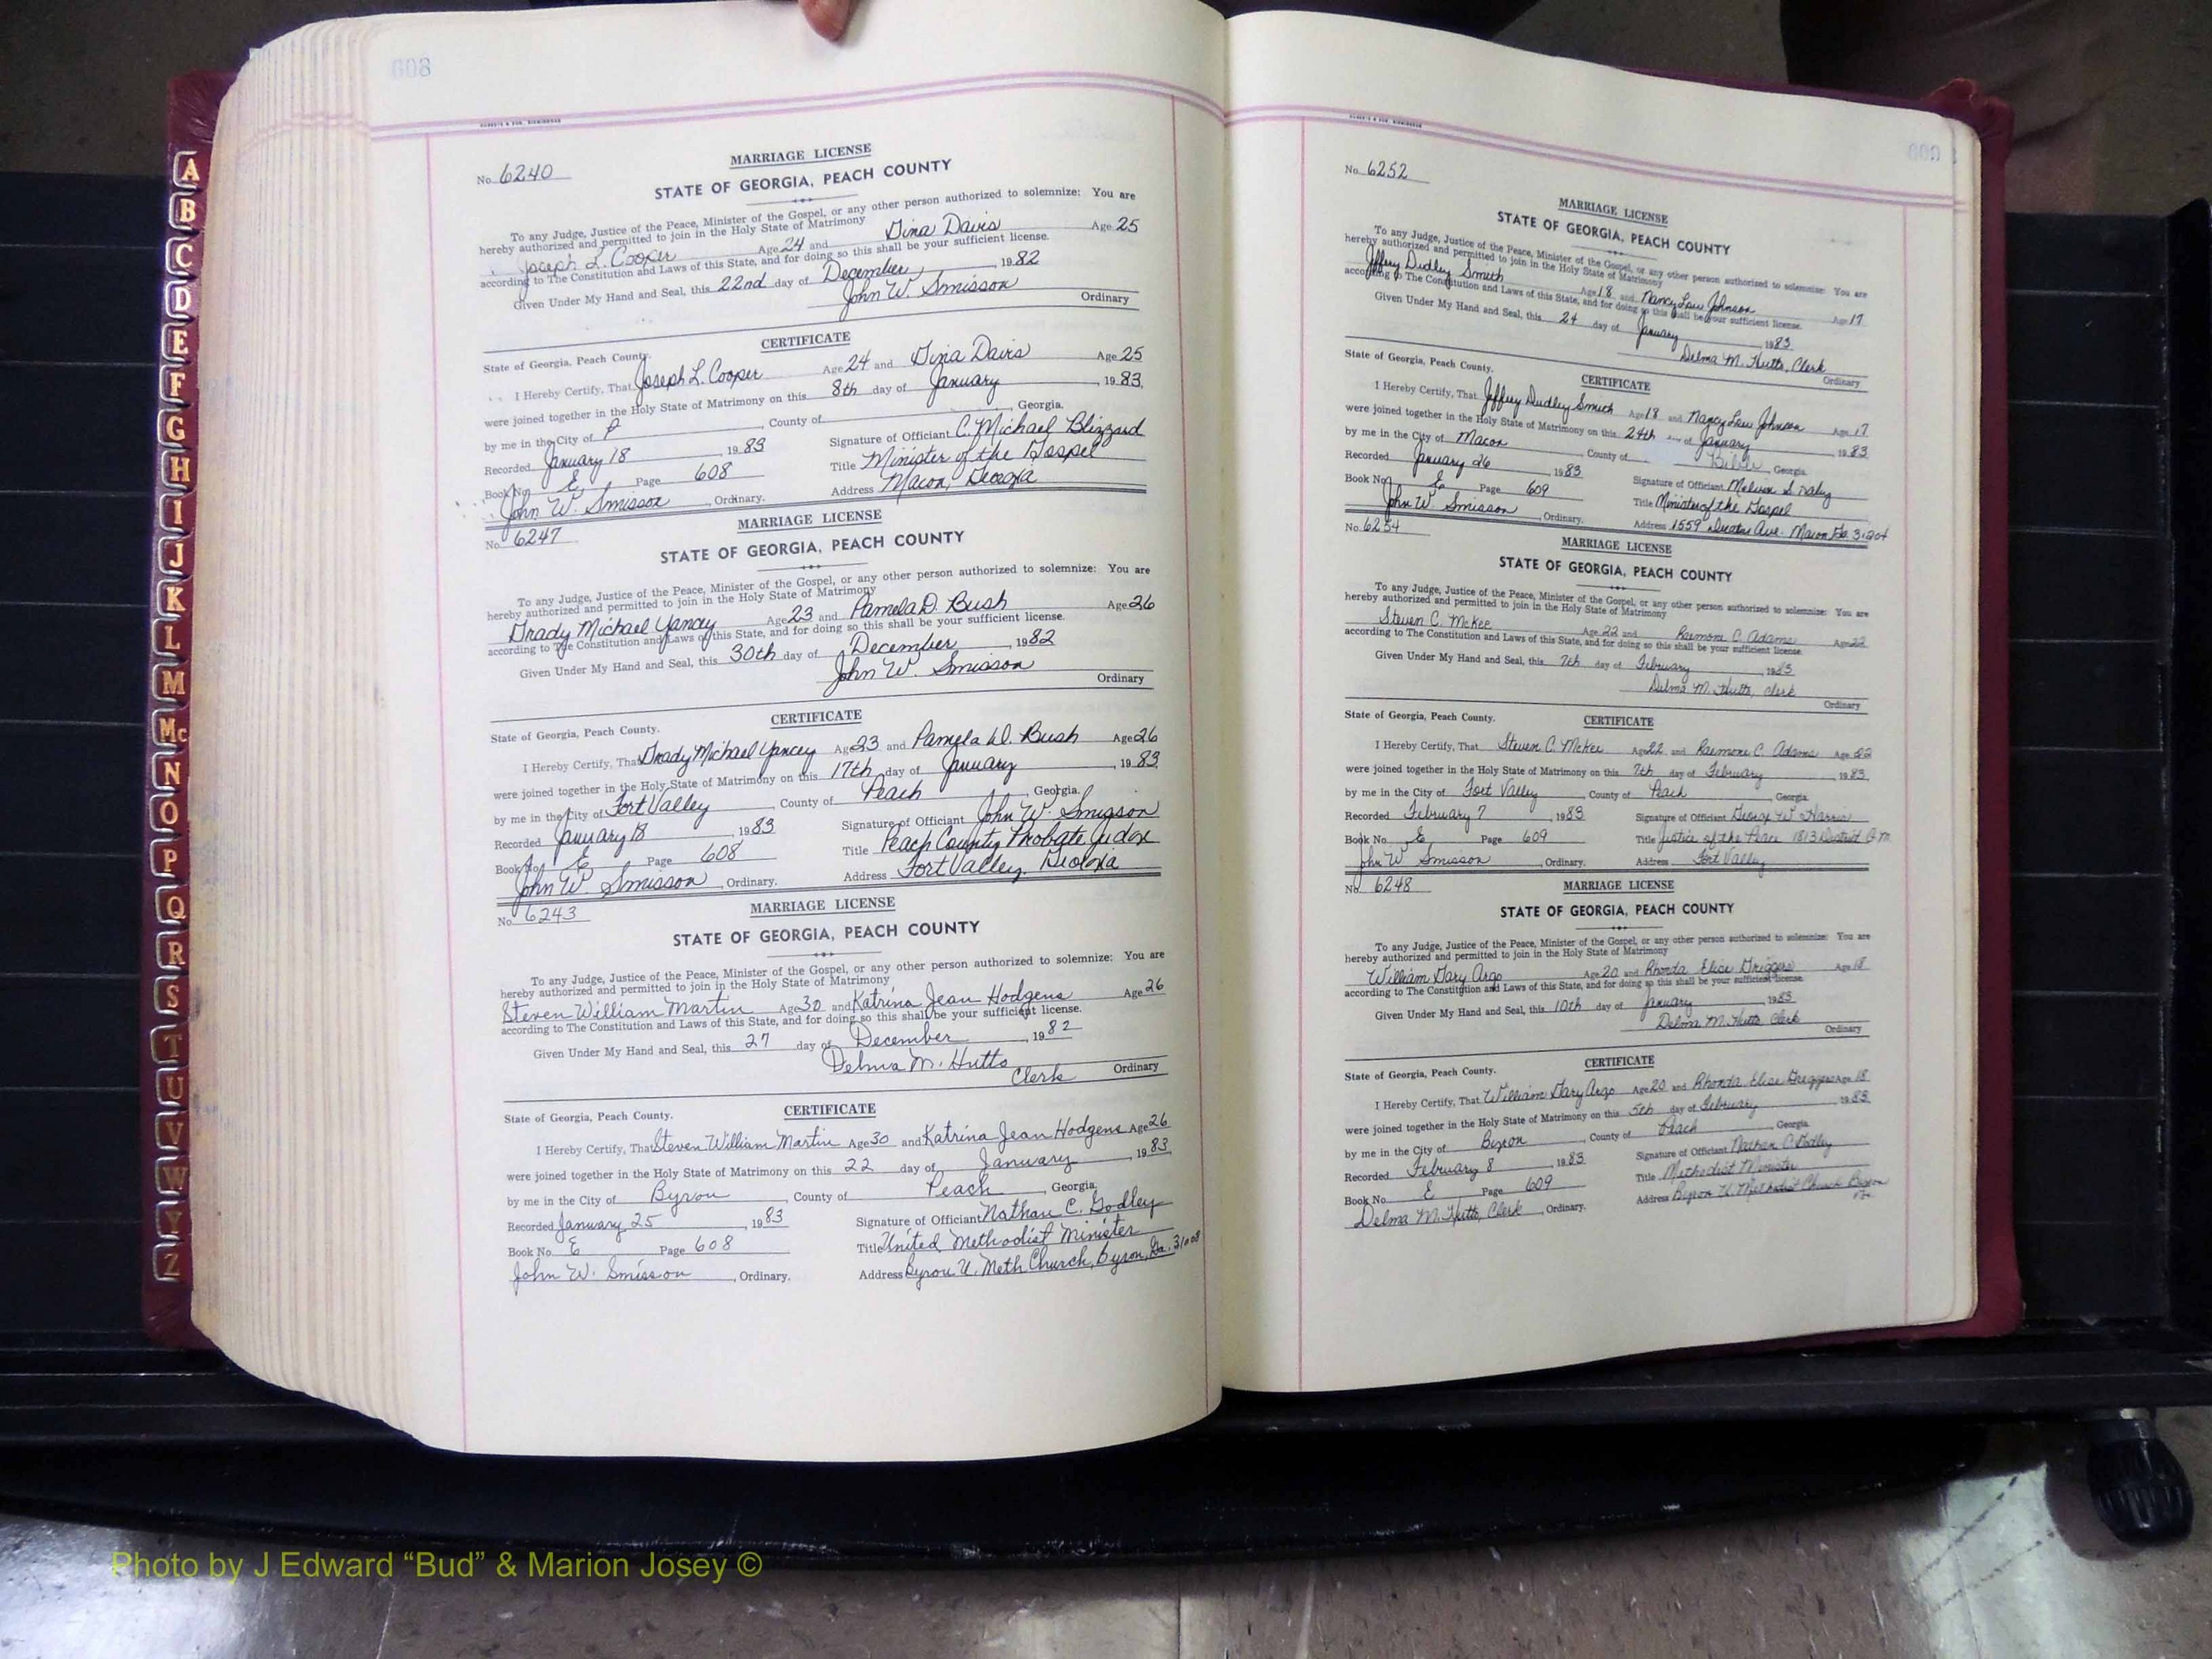 608
MARRIAGE LICENSE
No. 6240
STATE OF GEORGIA, PEACH COUNTY
To any Judge, Justice of the Peace, Minister of the Gospel, or any other person authorized to solemnize: You are
hereby authorized and permitted to join in the Holy State of Matrimony
Joseph L. Cooper Age 24 and Gina Davis Age 25
according to The Constitution and Laws of this State, and for doing so this shall be your sufficient license.
Given Under My Hand and Seal, this 22nd day of December, 1982
John W. Smisson
Ordinary
CERTIFICATE
State of Georgia, Peach County.
I Hereby Certify, That Joseph L. Cooper Age 24 and Gina Davis Age 25
were joined together in the Holy State of Matrimony on this 8th day of January, 1983
by me in the City of P, County of, Georgia.
Recorded January 18 1983 Signature of Officiant C. Michael Blizzard
Book No. E Page 608 Title Minister of the Gospel
John W. Smisson, Ordinary. Address Macon, Georgia
No. 6247
MARRIAGE LICENSE
STATE OF GEORGIA, PEACH COUNTY
To any Judge, Justice of the Peace, Minister of the Gospel, or any other person authorized to solemnize: You are
hereby authorized and permitted to join in the Holy State of Matrimony
Grady Michael Yancey Age 23 and Pamela D. Bush Age 26
according to The Constitution and Laws of this State, and for doing so this shall be your sufficient license.
Given Under My Hand and Seal, this 30th day of December, 1982
John W. Smisson
Ordinary
CERTIFICATE
State of Georgia, Peach County.
I Hereby Certify, That Grady Michael Yancey Age 23 and Pamela D. Bush Age 26
were joined together in the Holy State of Matrimony on this 17th day of January, 1983
by me in the City of Fort Valley, County of Peach, Georgia.
Recorded January 18, 1983 Signature of Officiant John W. Smisson
Book No. E Page 608 Title Peach County Probate Judge
John W. Smisson, Ordinary. Address Fort Valley, Georgia
No. 6243
MARRIAGE LICENSE
STATE OF GEORGIA, PEACH COUNTY
To any Judge, Justice of the Peace, Minister of the Gospel, or any other person authorized to solemnize: You are
hereby authorized and permitted to join in the Holy State of Matrimony
Steven William Martin Age 30 and Katrina Jean Hodgens Age 26
according to The Constitution and Laws of this State, and for doing so this shall be your sufficient license.
Given Under My Hand and Seal, this 27 day of December, 1982
Delma M. Hutto
Clerk Ordinary
CERTIFICATE
State of Georgia, Peach County.
I Hereby Certify, That Steven William Martin Age 30 and Katrina Jean Hodgens Age 26
were joined together in the Holy State of Matrimony on this 22 day of January, 1983
by me in the City of Byron, County of Peach, Georgia.
Recorded January 25, 1983 Signature of Officiant Nathan C. Godley
Book No. E Page 608 Title United Methodist Minister
John W. Smisson, Ordinary. Address Byron U. Meth Church, Byron, Ga. 31008
No. 6252
MARRIAGE LICENSE
STATE OF GEORGIA, PEACH COUNTY
To any Judge, Justice of the Peace, Minister of the Gospel, or any other person authorized to solemnize: You are
hereby authorized and permitted to join in the Holy State of Matrimony
Jeffrey Dudley Smith Age 18 and Nancy Lou Johnson Age 17
according to The Constitution and Laws of this State, and for doing so this shall be your sufficient license.
Given Under My Hand and Seal, this 24 day of January, 1983
Delma M. Hutto, Clerk
Ordinary
State of Georgia, Peach County.
CERTIFICATE
I Hereby Certify, That Jeffrey Dudley Smith Age 18 and Nancy Lou Johnson Age 17
were joined together in the Holy State of Matrimony on this 24th day of January 1983
by me in the City of Macon, County of Bibb, Georgia
Recorded January 26, 1983 Signature of Officiant Melvin S.
Book No. E Page 609 Title Minister of the Gospel
John W. Smisson, Ordinary. Address 1559 Ave. Macon Ga.
No. 6254
MARRIAGE LICENSE
STATE OF GEORGIA, PEACH COUNTY
To any Judge, Justice of the Peace, Minister of the Gospel, or any other person authorized to solemnize: You are
hereby authorized and permitted to join in the Holy State of Matrimony
Steven C. McKee Age 22 and C. Adams Age 22
according to The Constitution and Laws of this State, and for doing so this shall be your sufficient license.
Given Under My Hand and Seal, this 7th day of February, 1983
Delma M. Hutto, Clerk
Ordinary
State of Georgia, Peach County.
CERTIFICATE
I Hereby Certify, That Steven C. McKee Age 22 and C. Adams Age 22
were joined together in the Holy State of Matrimony on this 7th day of February, 1983
by me in the City of Fort Valley, County of Peach, Georgia
Recorded February 7, 1983 Signature of Officiant George W. Harris
Book No. E Page 609 Title Justice of the Peace 1813 District G.M.
John W Smisson, Ordinary. Address Fort Valley
No. 6248
MARRIAGE LICENSE
STATE OF GEORGIA, PEACH COUNTY
To any Judge, Justice of the Peace, Minister of the Gospel, or any other person authorized to solemnize: You are
hereby authorized and permitted to join in the Holy State of Matrimony
William Gary Argo Age 20 and Rhonda Elise Griggers Age 18
according to The Constitution and Laws of this State, and for doing so this shall be your sufficient license.
Given Under My Hand and Seal, this 10th day of January, 1983
Delma M. Hutto Clerk
Ordinary
CERTIFICATE
State of Georgia, Peach County.
I Hereby Certify, That William Gary Argo Age 20 and Rhonda Elise Griggers Age 18
were joined together in the Holy State of Matrimony on this 5th day of February, 1983
by me in the City of Byron, County of Peach, Georgia
Recorded February 8, 1983 Signature of Officiant Nathan C Godley
Book No. E Page 609 Title Methodist Minister
Delma M. Hutto, Clerk, Ordinary. Address Byron U. Methodist Church Byron Ga.
A
B
C
D
E
F
G
H
I
J
K
L
M
Mc
N
O
P
Q
R
S
T
U
V
W
Y
Z
Photo by J Edward “Bud” & Marion Josey ©